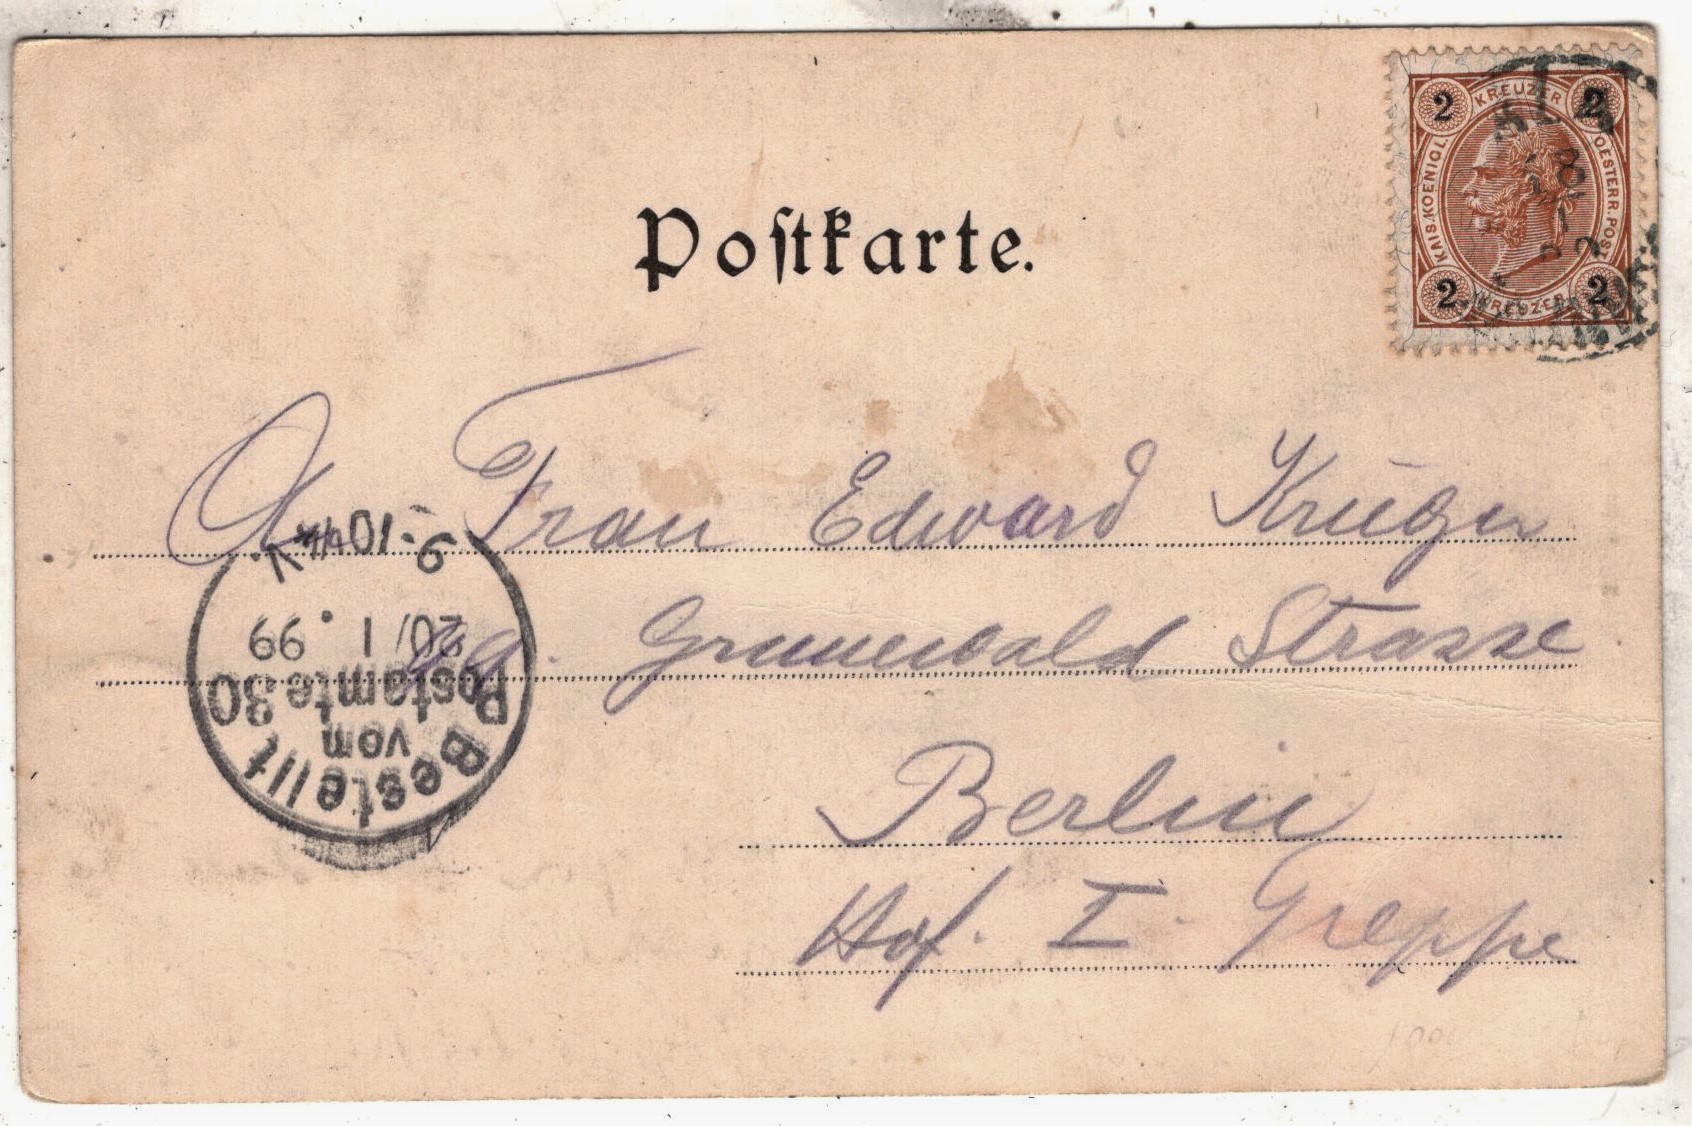 Postkarte.
2 KREUZER 2
KAIS. KOENIGL. OESTERR. POST
2 KREUZER 2
18
1
An Frau Edward Krüger
Grunewald Strasse
Berlin
Hof. I. Treppe
Bestellt
vom
Postamte 30
20/1.99
9-10 V